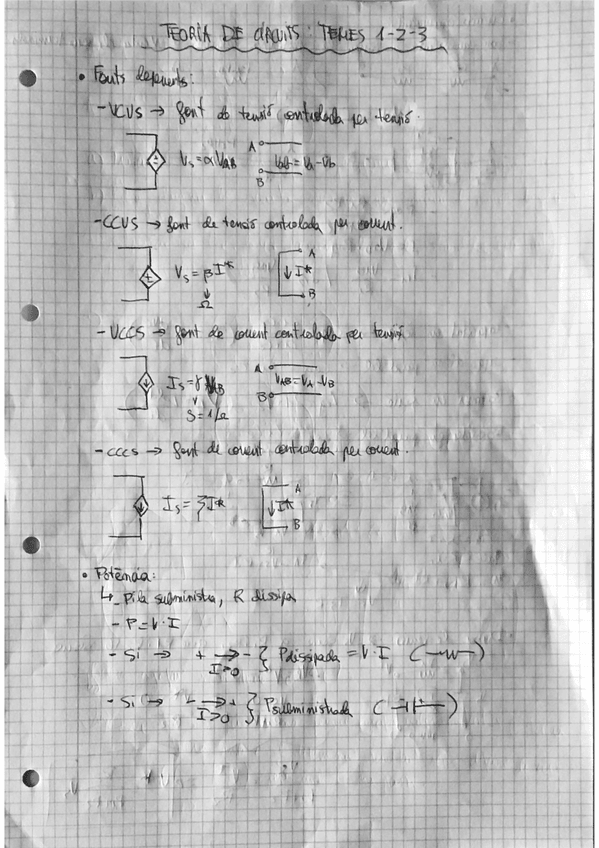 TEORIA DE CIRCUITS: TEMES 1-2-3
• Fonts depenents:
- VCVS → font de tensió controlada per tensió.
Vs = αVAB A B Vab = Va - Vb
- CCVS → font de tensió controlada per corrent.
Vs = βI* A ↓I* B
↓
Ω
- VCCS → font de corrent controlada per tensió
Is = γVAB A B VAB = VA - VB
S = 1/Ω
- CCCS → font de corrent controlada per corrent.
Is = ξI* A ↓I* B
• Potència:
↳ - Pila subministra, R dissipa
- P = V·I
- Si → + → - } Pdissipada = V·I
I>0
- Si → - → + } Psubministrada
I>0